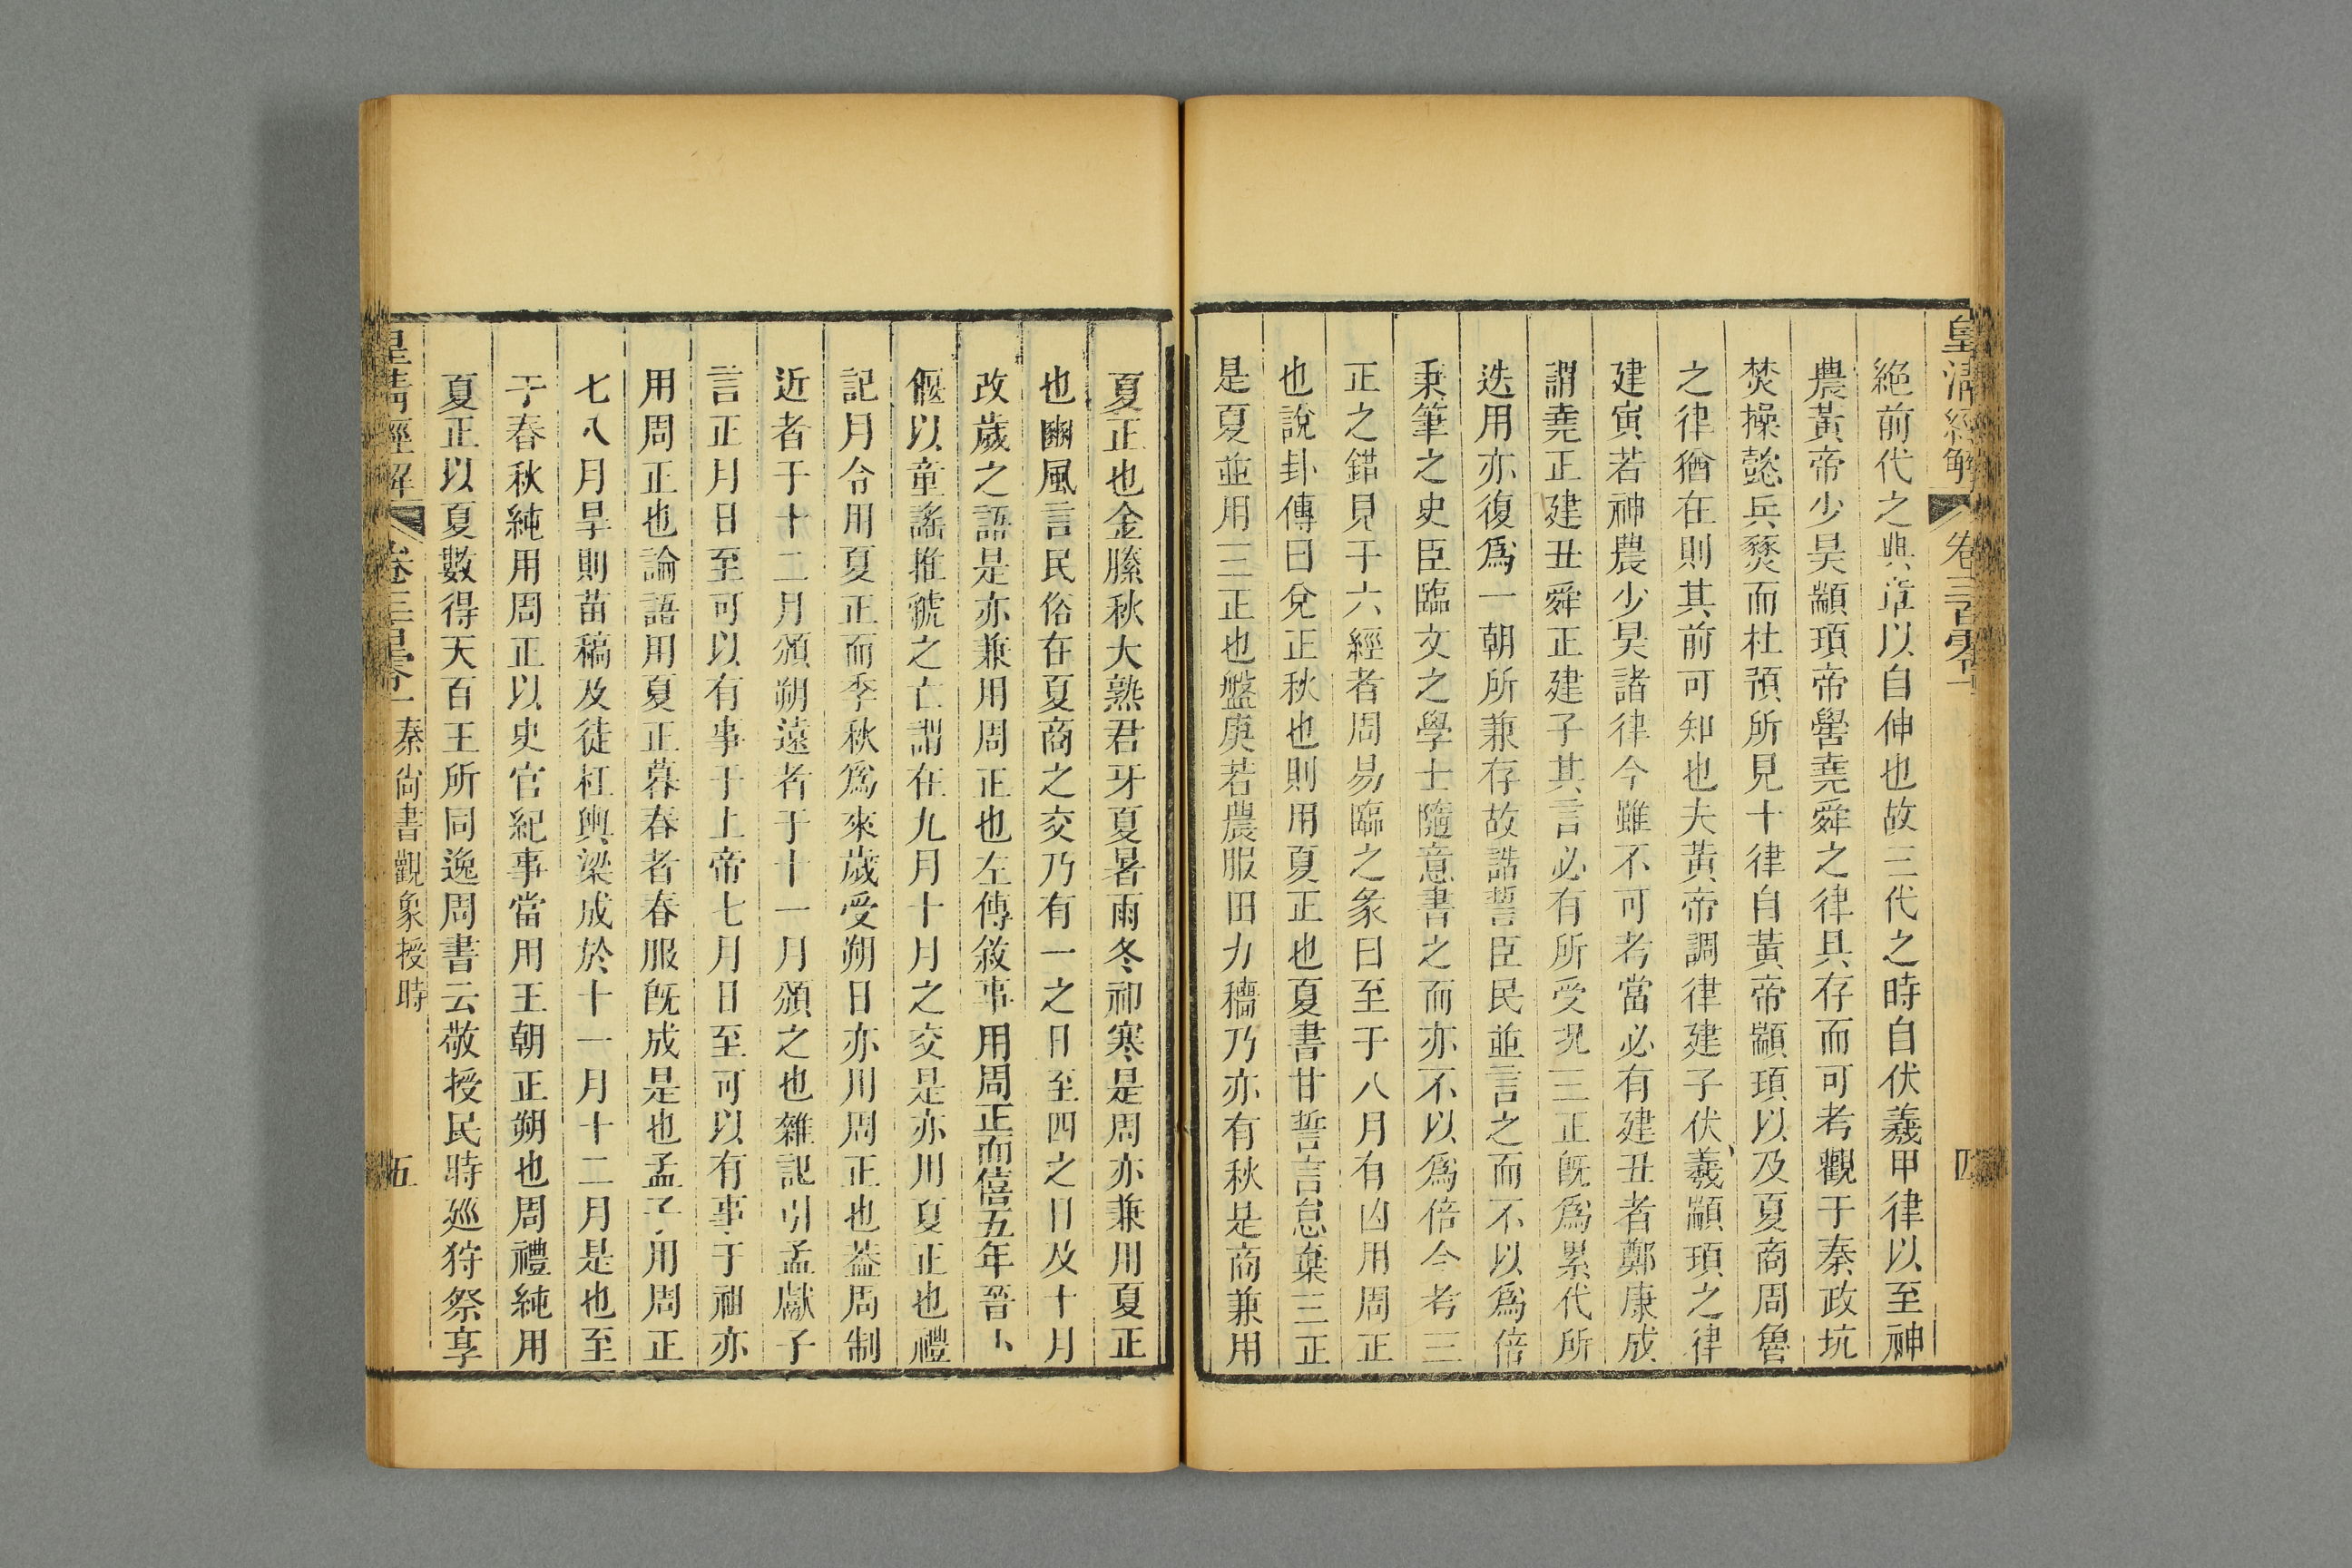 皇清經解 卷三百零一 四
絶前代之典章以自伸也故三代之時自伏羲甲律以至神
農黃帝少昊顓頊帝嚳堯舜之律具存而可考觀于秦政坑
焚操懿兵燹而杜預所見十律自黃帝顓頊以及夏商周魯
之律猶在則其前可知也夫黃帝調律建子伏羲顓頊之律
建寅若神農少昊諸律今雖不可考當必有建丑者鄭康成
謂堯正建丑舜正建子其言必有所受況三正旣爲累代所
迭用亦復爲一朝所兼存故誥誓臣民並言之而不以爲倍
秉筆之史臣臨文之學士隨意書之而亦不以爲倍今考三
正之錯見于六經者周易臨之彖曰至于八月有凶用周正
也說卦傳曰兌正秋也則用夏正也夏書甘誓言怠棄三正
是夏並用三正也盤庚若農服田力穡乃亦有秋是商兼用
夏正也金縢秋大熟君牙夏暑雨冬祁寒是周亦兼用夏正
也豳風言民俗在夏商之交乃有一之日至四之日及十月
改歲之語是亦兼用周正也左傳敘事用周正而僖五年晉卜
偃以童謠推虢之亡謂在九月十月之交是亦用夏正也禮
記月令用夏正而季秋爲來歲受朔日亦用周正也葢周制
近者于十二月頒朔遠者于十一月頒之也雜記引孟獻子
言正月日至可以有事于上帝七月日至可以有事于祖亦
用周正也論語用夏正暮春者春服旣成是也孟子用周正
七八月旱則苗稿及徒杠輿梁成於十一月十二月是也至
于春秋純用周正以史官紀事當用王朝正朔也周禮純用
夏正以夏數得天百王所同逸周書云敬授民時廵狩祭享
皇清經解 卷三百零一 秦尙書觀象授時 五